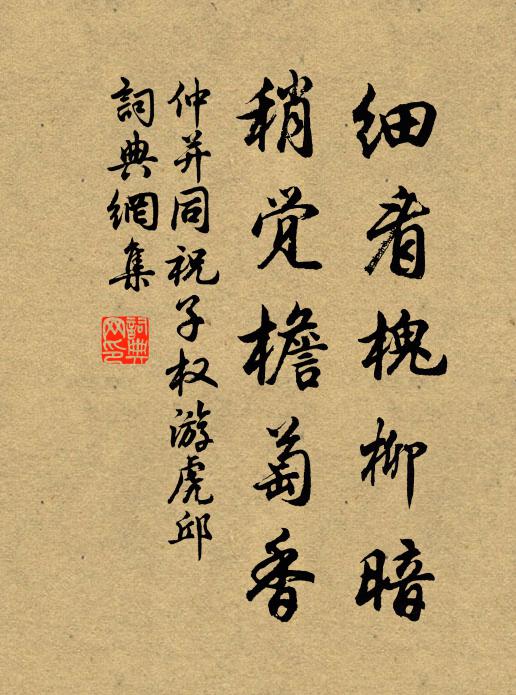 细看槐柳暗
稍觉檐萄香
仲并同祝子权游虎邱
詞典網集
詞典网印